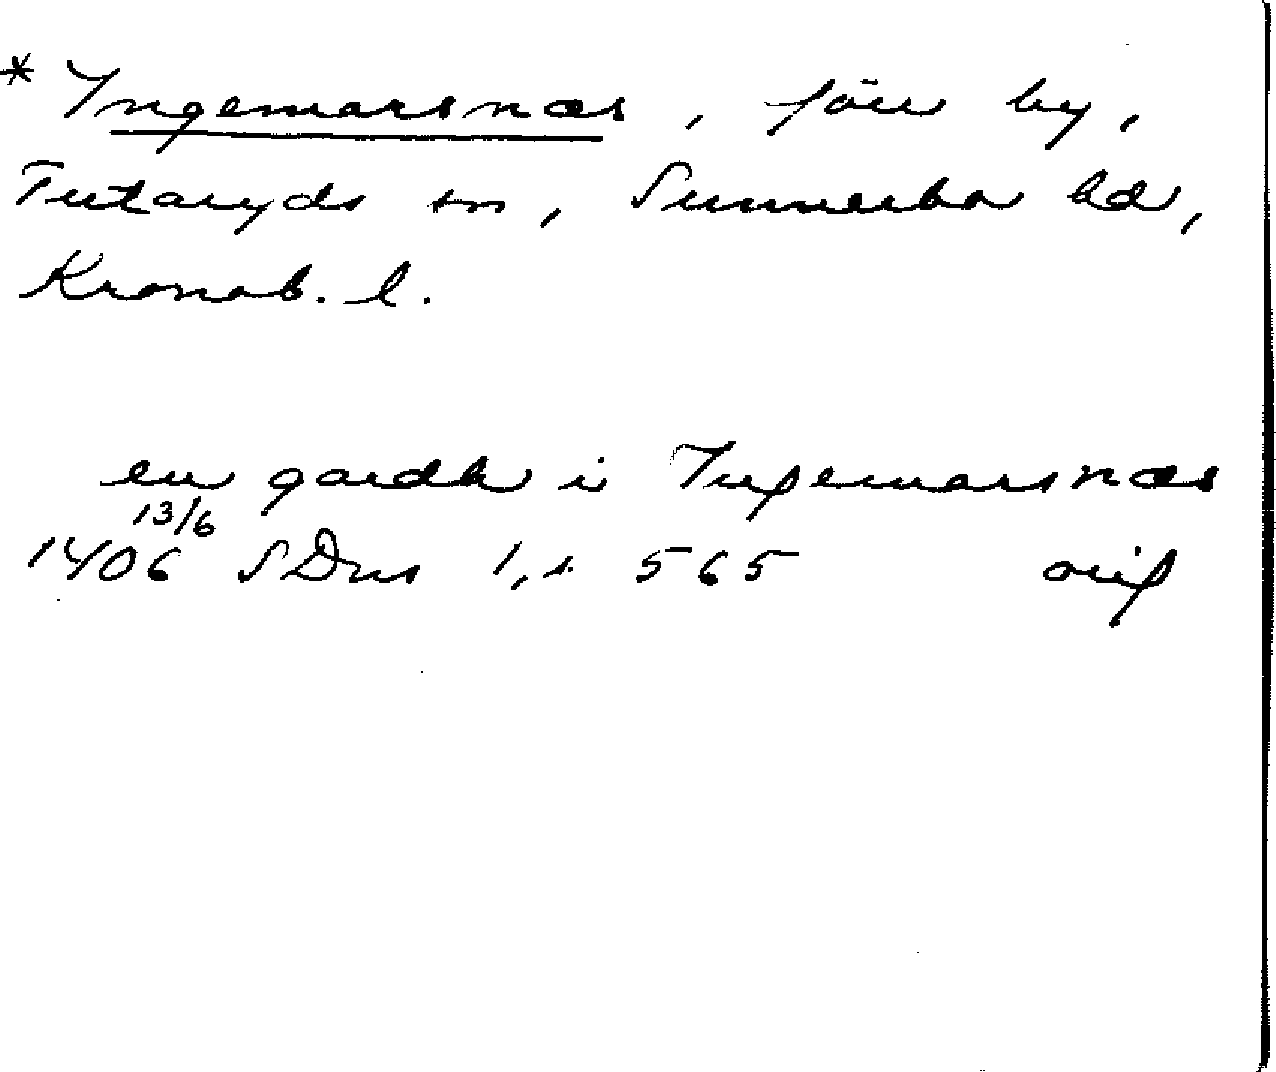 * Ingemarsnæs, förr by,
Tutaryds sn, Sunnerbo hd,
Kronob. l.
en gardh i Ingemarsnæs
13/6
1406 SDns 1, s. 565 orig